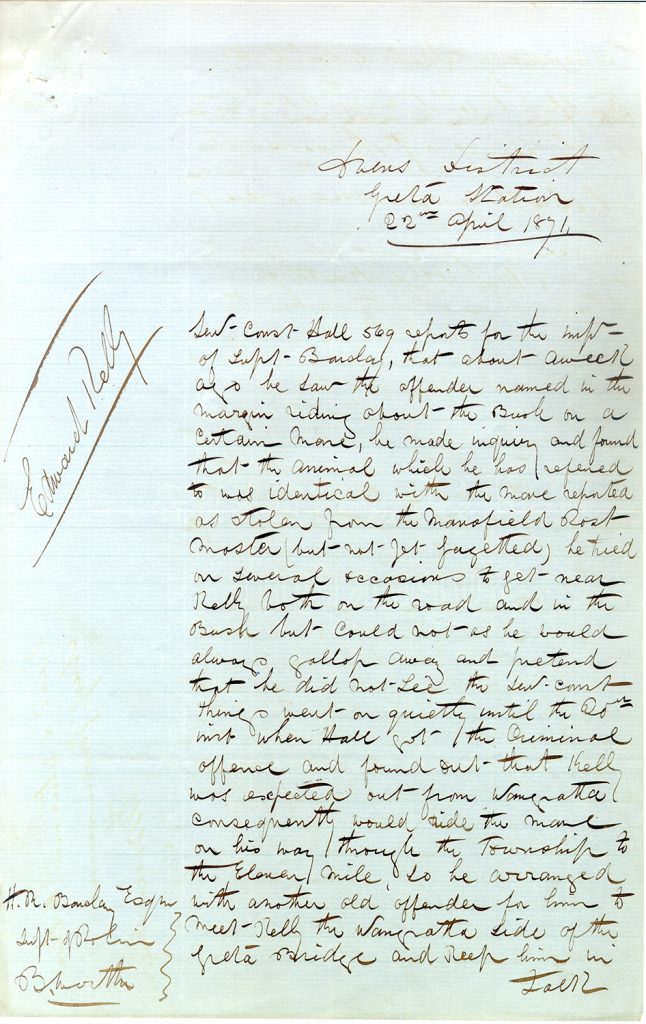 Ovens District
Greta Station
22nd April 1871.
Edward Kelly
Sen-Const-Hall 569 reports for the infn-
of Supt-Barclay, that about a week
ago he saw the offender named in the
margin riding about the Bush on a
Certain Mare, he made inquiry and found
that the animal which he has refered
to was identical with the mare reported
as stolen from the Mansfield Post
Master (but not-yet gazetted) he tried
on several occasions to get near
Kelly both on the road and in the
Bush but could not as he would
always gallop away and pretend
that he did not-See the Sen-const
things went on quietly until the 20th
inst when Hall got the Criminal
offence and found out that Kelly
was expected out from Wangratta
consequently would ride the mare
on his way through the Township to
the Eleven Mile, so he arranged
with another old offender for him to
meet-Kelly the Wangratta side of the
Greta Bridge and Keep him in
Talk
H. M. Barclay Esqre
Supt-of Police
Bworth